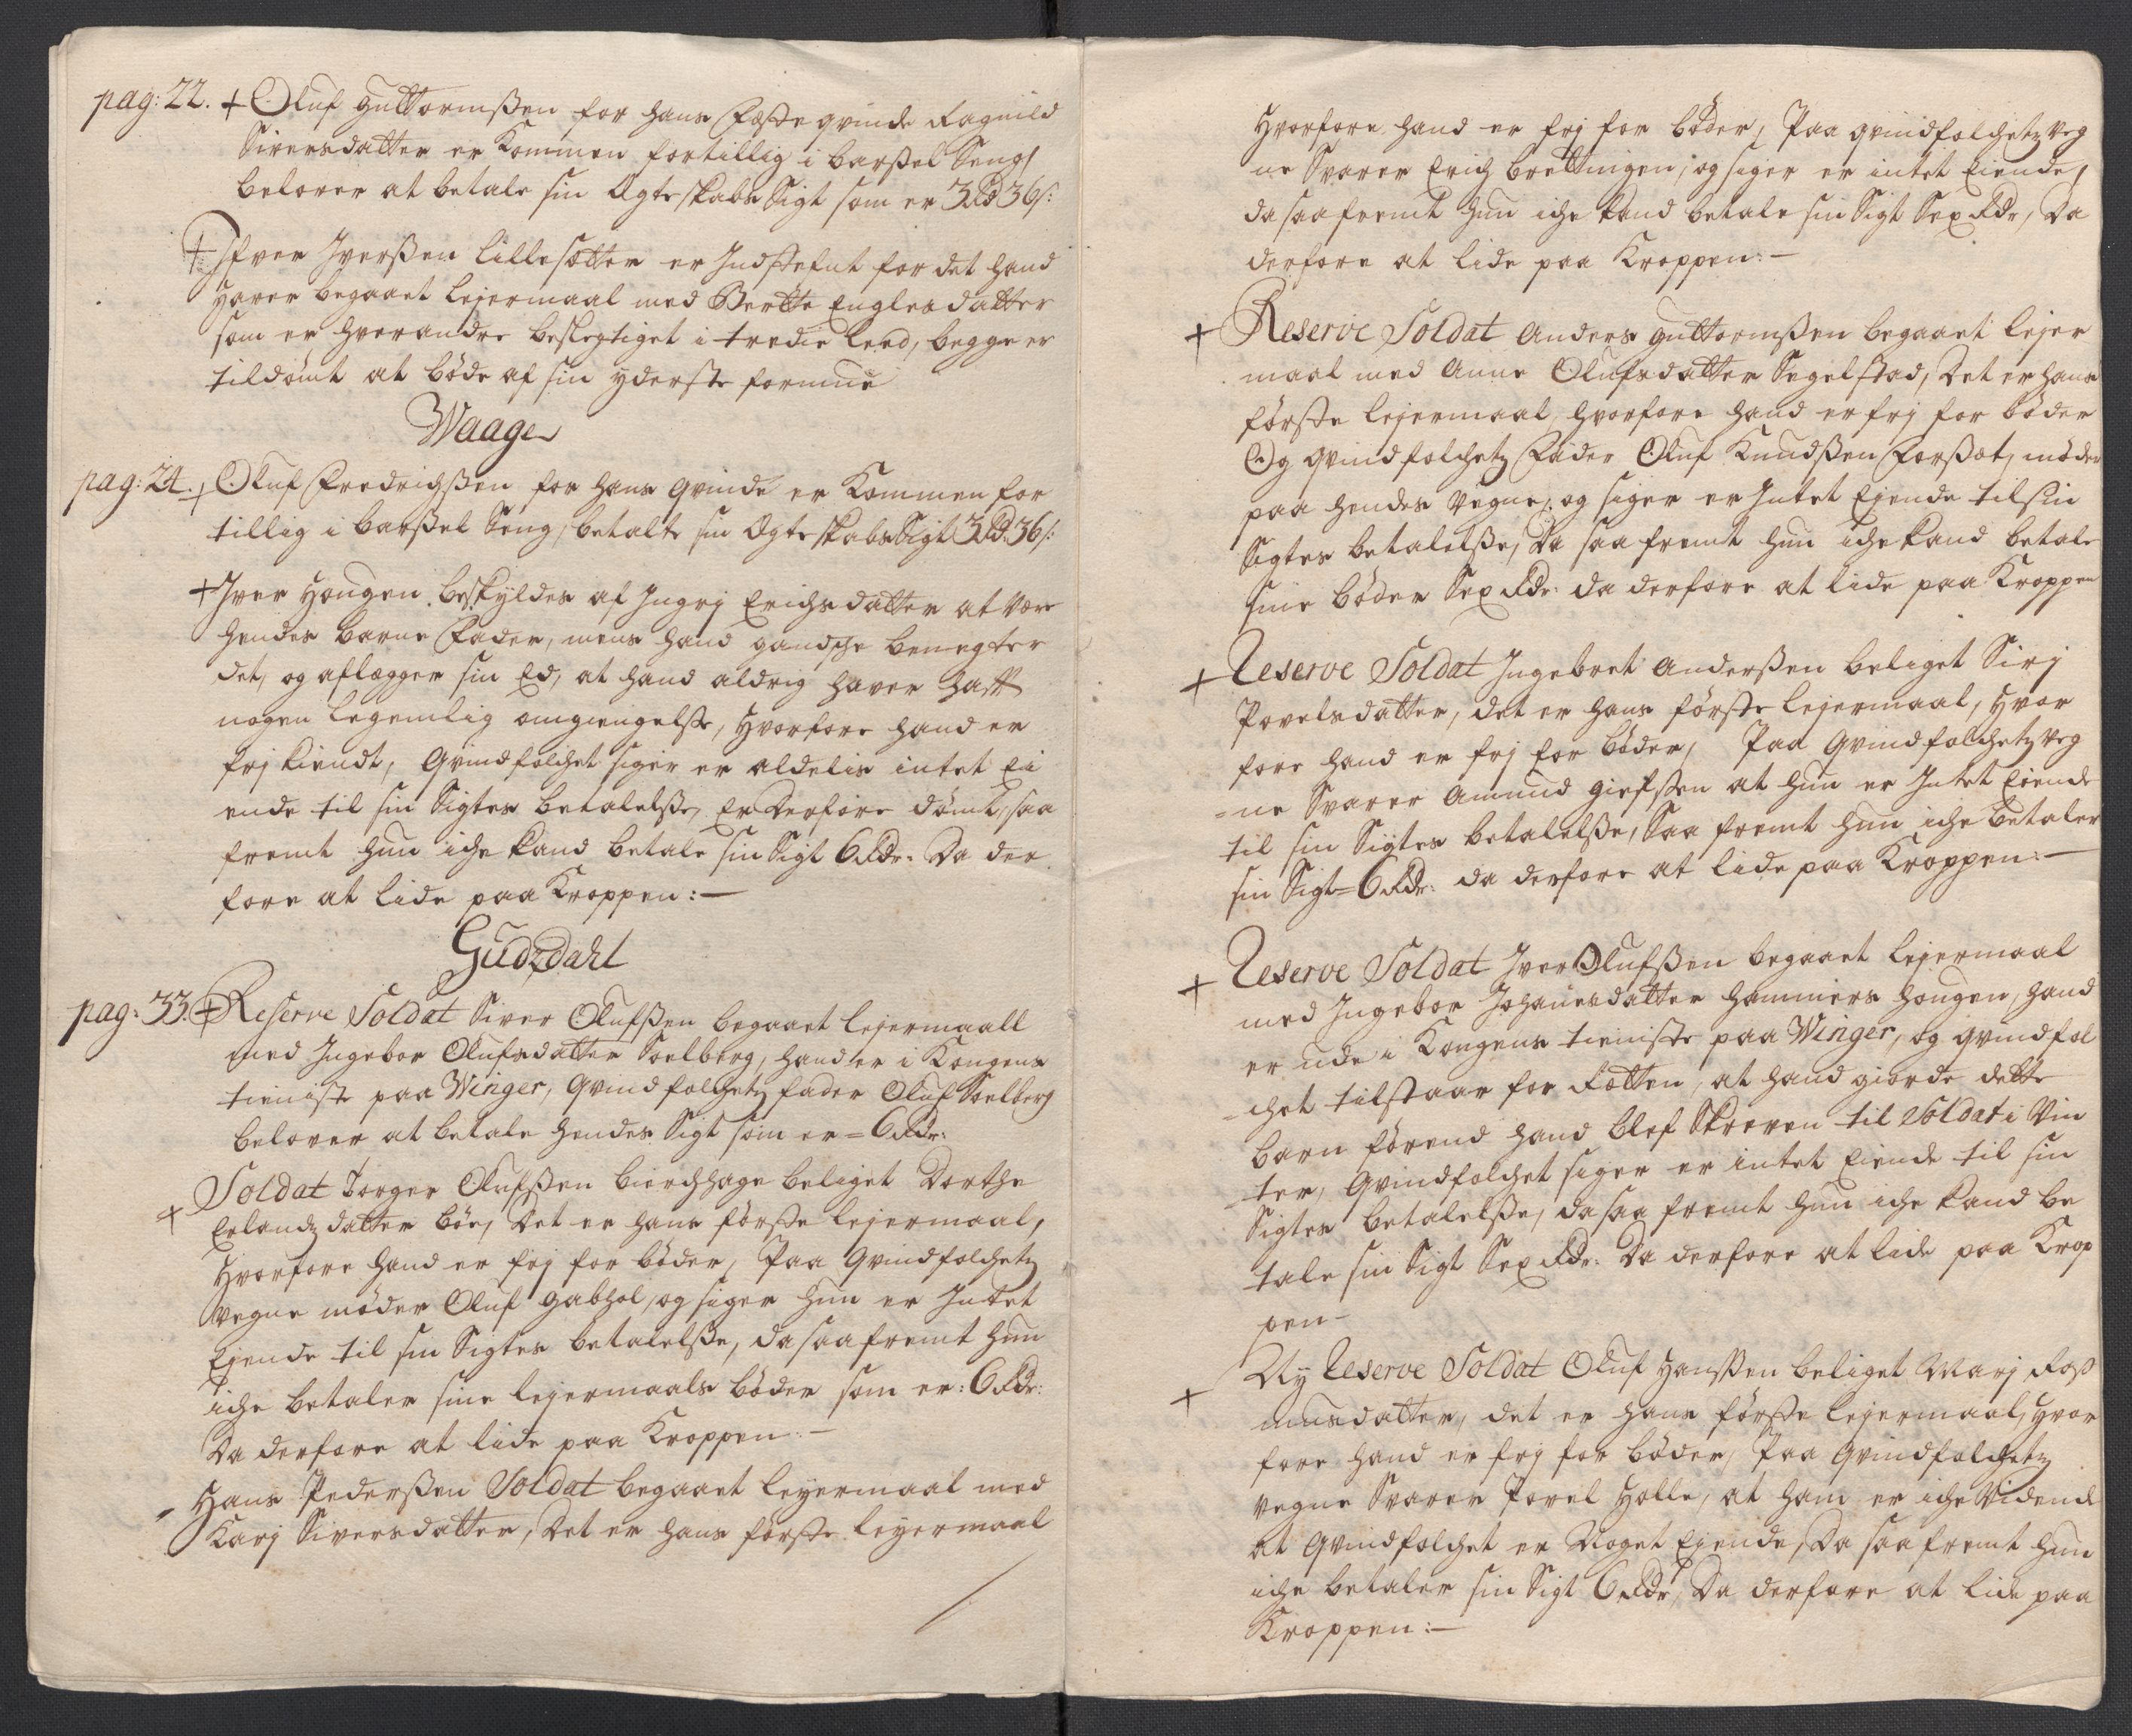 pag: 22. + Oluf Guttormßen for hans Fæste qvinde Ragnild
Siversdatter er Kommen fortillig i barsel Seng,
belover at betale sin Ægteskabs Sigt som er 3 Rd 36 s:
+ Ifver Iverßen Lillesætter er Indstefnt for det hand
haver begaaet lejermaal med Berthe Englesdatter
som er hverandre beslegtiget i tredie leed, begge er
tildømt at bøde af sin yderste formue
Waage
pag: 24. + Oluf Fredrichßen for hans qvinde er Kommen for
tillig i barßel Seng, betalte sin Ægteskabs Sigt 3 Rd. 36 s:
+ Iver Hougen beskyldes af Ingrj Erichsdatter at være
hendes barne Fader, mens hand gandsche benegter
det, og aflægger sin Ed, at hand aldrig haver hafft
nogen legemlig omgiengelse, hvorfore hand er
frj kiendt, Qvindfolchet siger er aldelis intet Ei
ende til sin Sigtes betalelße, Er derfore dømt, saa
fremt hun iche kand betale sin Sigt 6 Rdr: da der
fore at lide paa Kroppen: —
Gudzdahl
pag: 33. + Reserve Soldat Siver Olufßen begaaet lejermaall
med Ingebor Olufsdatter Soelberg, hand er i Kongens
tieniste paa Winger, Qvindfolchetz fader Oluf Soelberg
belover at betale hendes Sigt som er = 6 Rdr:
+ Soldat Torger Olufßen bierchhage beliget Dorthe
Erlandzdatter bøe, Det er hans første lejermaal,
hvorfore hand er frj for bøder, Paa Qvindfolchetz
vegne møder Oluf Gabhol, og siger hun er Intet
Ejende til sin Sigtes betalelße, da saafremt hun
iche betaler sine lejermaals bøder som er: 6 Rdr:
Da derfore at lide paa Kroppen: —
Hans Pederßen Soldat begaaet leyermaal med
Karj Siversdatter, Det er hans første leyermaal
hvorfore hand er frj for bøder, Paa qvindfolchetz veg
ne Svarer Erich brettingen, og siger er intet Eiende,
da saafremt hun iche kand betale sin Sigt Sex Rdr, Da
derfore at lide paa Kroppen: —
+ Reserve Soldat Anders Guttormßen begaaet lejer
maal med Anne Olufsdatter Segelstad, Det er hans
første lejermaal, hvorfore hand er frj for bøder
Og qvindfolchetz Fader Oluf Knudßen Forßæt, møder
paa hendes vegne, og siger er Intet Ejende til sin
Sigtes betalelße, Da saa fremt hun iche kand betale
sine bøder Sex Rdr: da derfore at lide paa Kroppen
+ Reserve Soldat Ingebret Anderßen beliget Sirj
Povelsdatter, det er hans første lejermaal, hvor
fore hand er frj for bøder, Paa Qvindfolchetz veg
=ne Svarer Amund giefßen at hun er Intet Eiende
til sin Sigtes betalelße, Saa fremt hun iche betaler
sin Sigt = 6 Rdr: da derfore at lide paa Kroppen: —
+ Reserve Soldat Iver Olufßen begaaet lejermaal
med Ingebor Johanesdatter hammers hougen, hand
er ude i Kongens tieniste paa Winger, og qvindfol
=chet tilstaar for Retten, at hand giorde dette
barn førend hand blef Skreven til Soldat i Vin
=ter, Qvindfolchet siger er intet Eiende til sin
Sigtes betalelße, da saa fremt hun iche kand be
tale sin Sigt Sex Rdr: Da derfore at lide paa Krop
pen —
+ Ny Reserve Soldat Oluf Hanßen beliget Marj Raß
musdatter, det er hans første lejermaal, hvor
fore hand er frj for bøder, Paa Qvindfolchetz
vegne Svarer Povel Holle, at ham er iche vidende
at Qvindfolchet er Noget Ejende, Da saa fremt hun
iche betaler sin Sigt 6 Rdr, Da derfore at lide paa
Kroppen: —